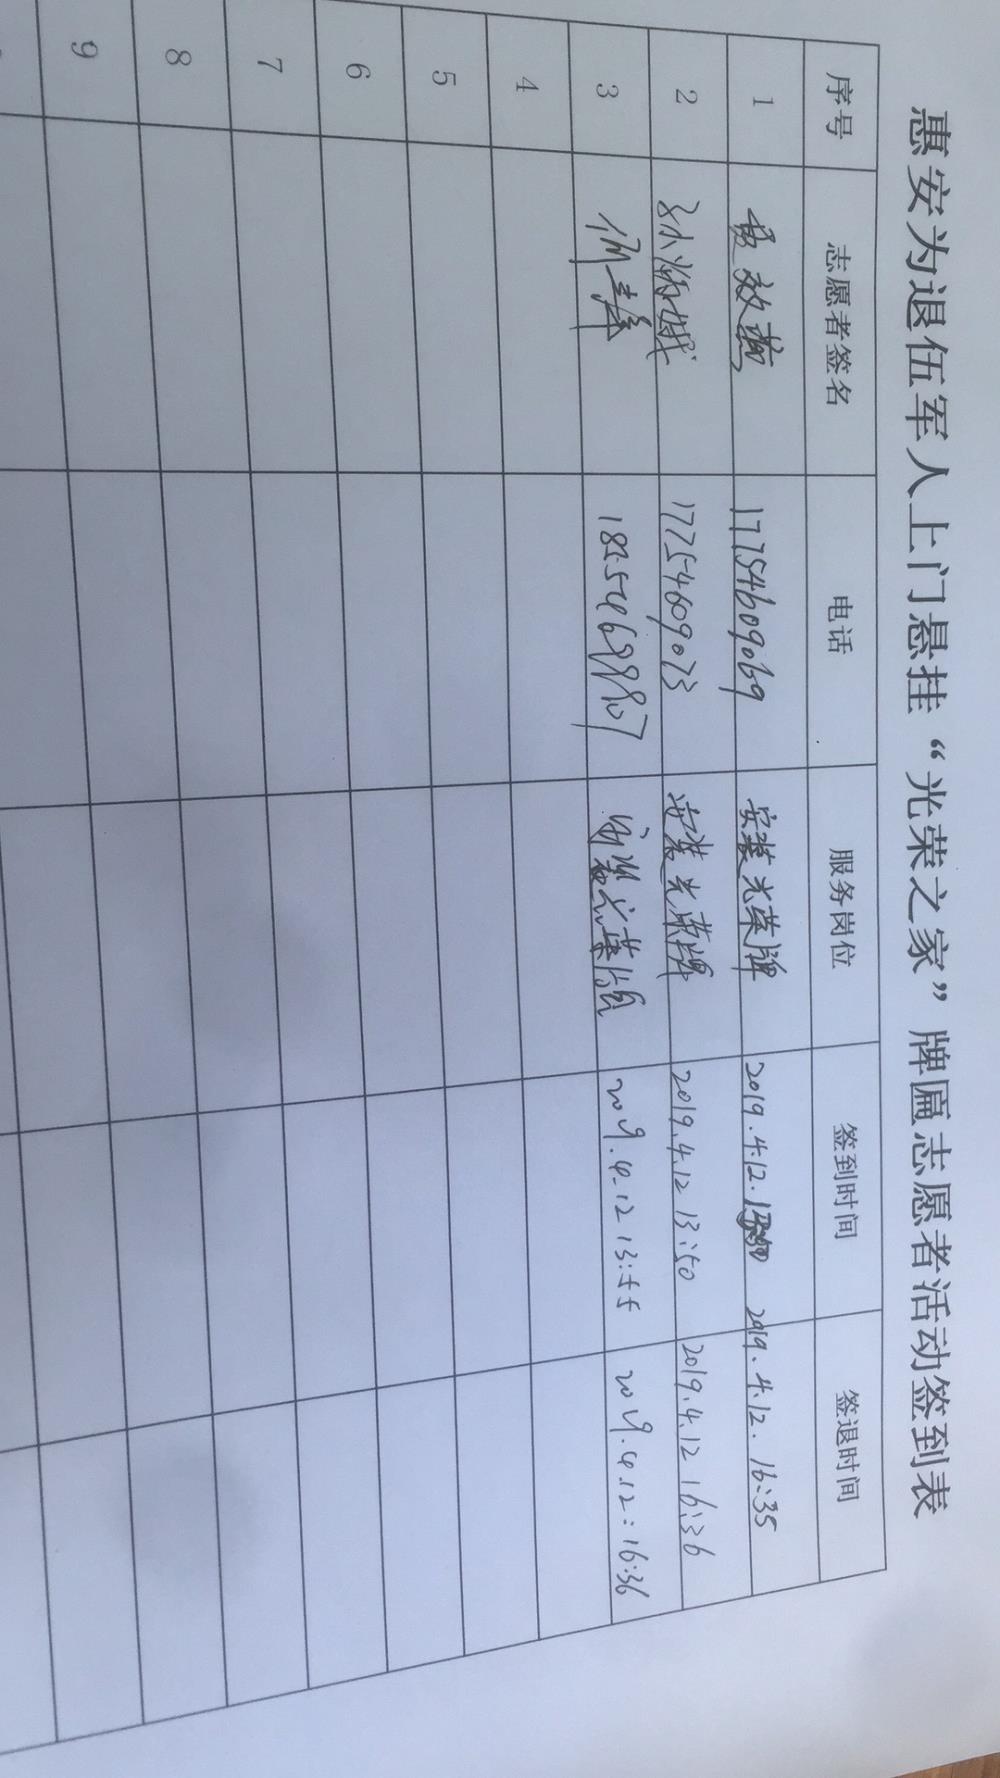 惠安为退伍军人上门悬挂“光荣之家”牌匾志愿者活动签到表
序号 志愿者签名 电话 服务岗位 签到时间 签退时间
1 17754609069 安装光荣牌 2019.4.12. 2019.4.12. 16:35
2 17754609073 安装光荣牌 2019.4.12 13:50 2019.4.12 16:36
3 2019.4.12 13:55 2019.4.12:16:36
4
5
6
7
8
9